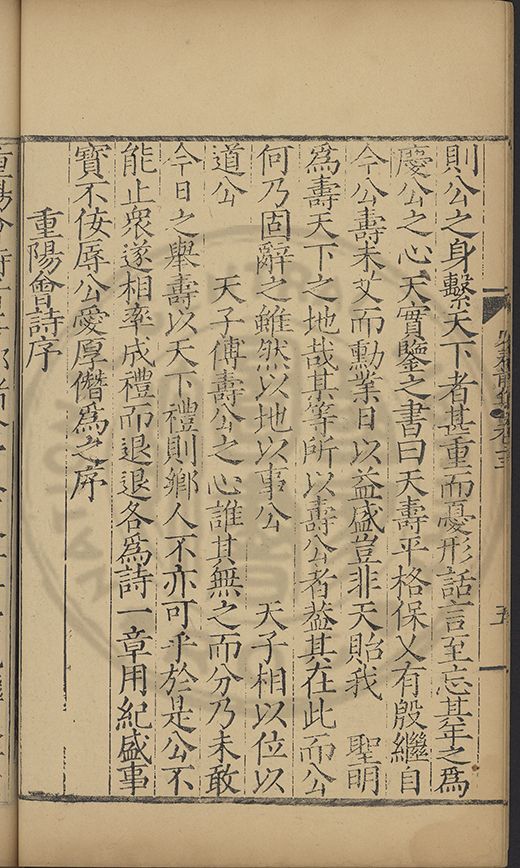 則公之身繫天下者甚重而憂形話言至忘其年之為
慶公之心天實鑒之書曰天壽平格保乂有殷繼自
今公壽未艾而勳業日以益盛豈非天貽我　聖明
為壽天下之地哉某等所以壽公者葢其在此而公
何乃固辭之雖然以地以事公　天子相以位以
道公　天子傅壽公之心誰其無之而分乃未敢
今日之舉壽以天下禮則鄉人不亦可乎於是公不
能止衆遂相率成禮而退退各為詩一章用紀盛事
寳不佞辱公愛厚僭為之序
重陽會詩序